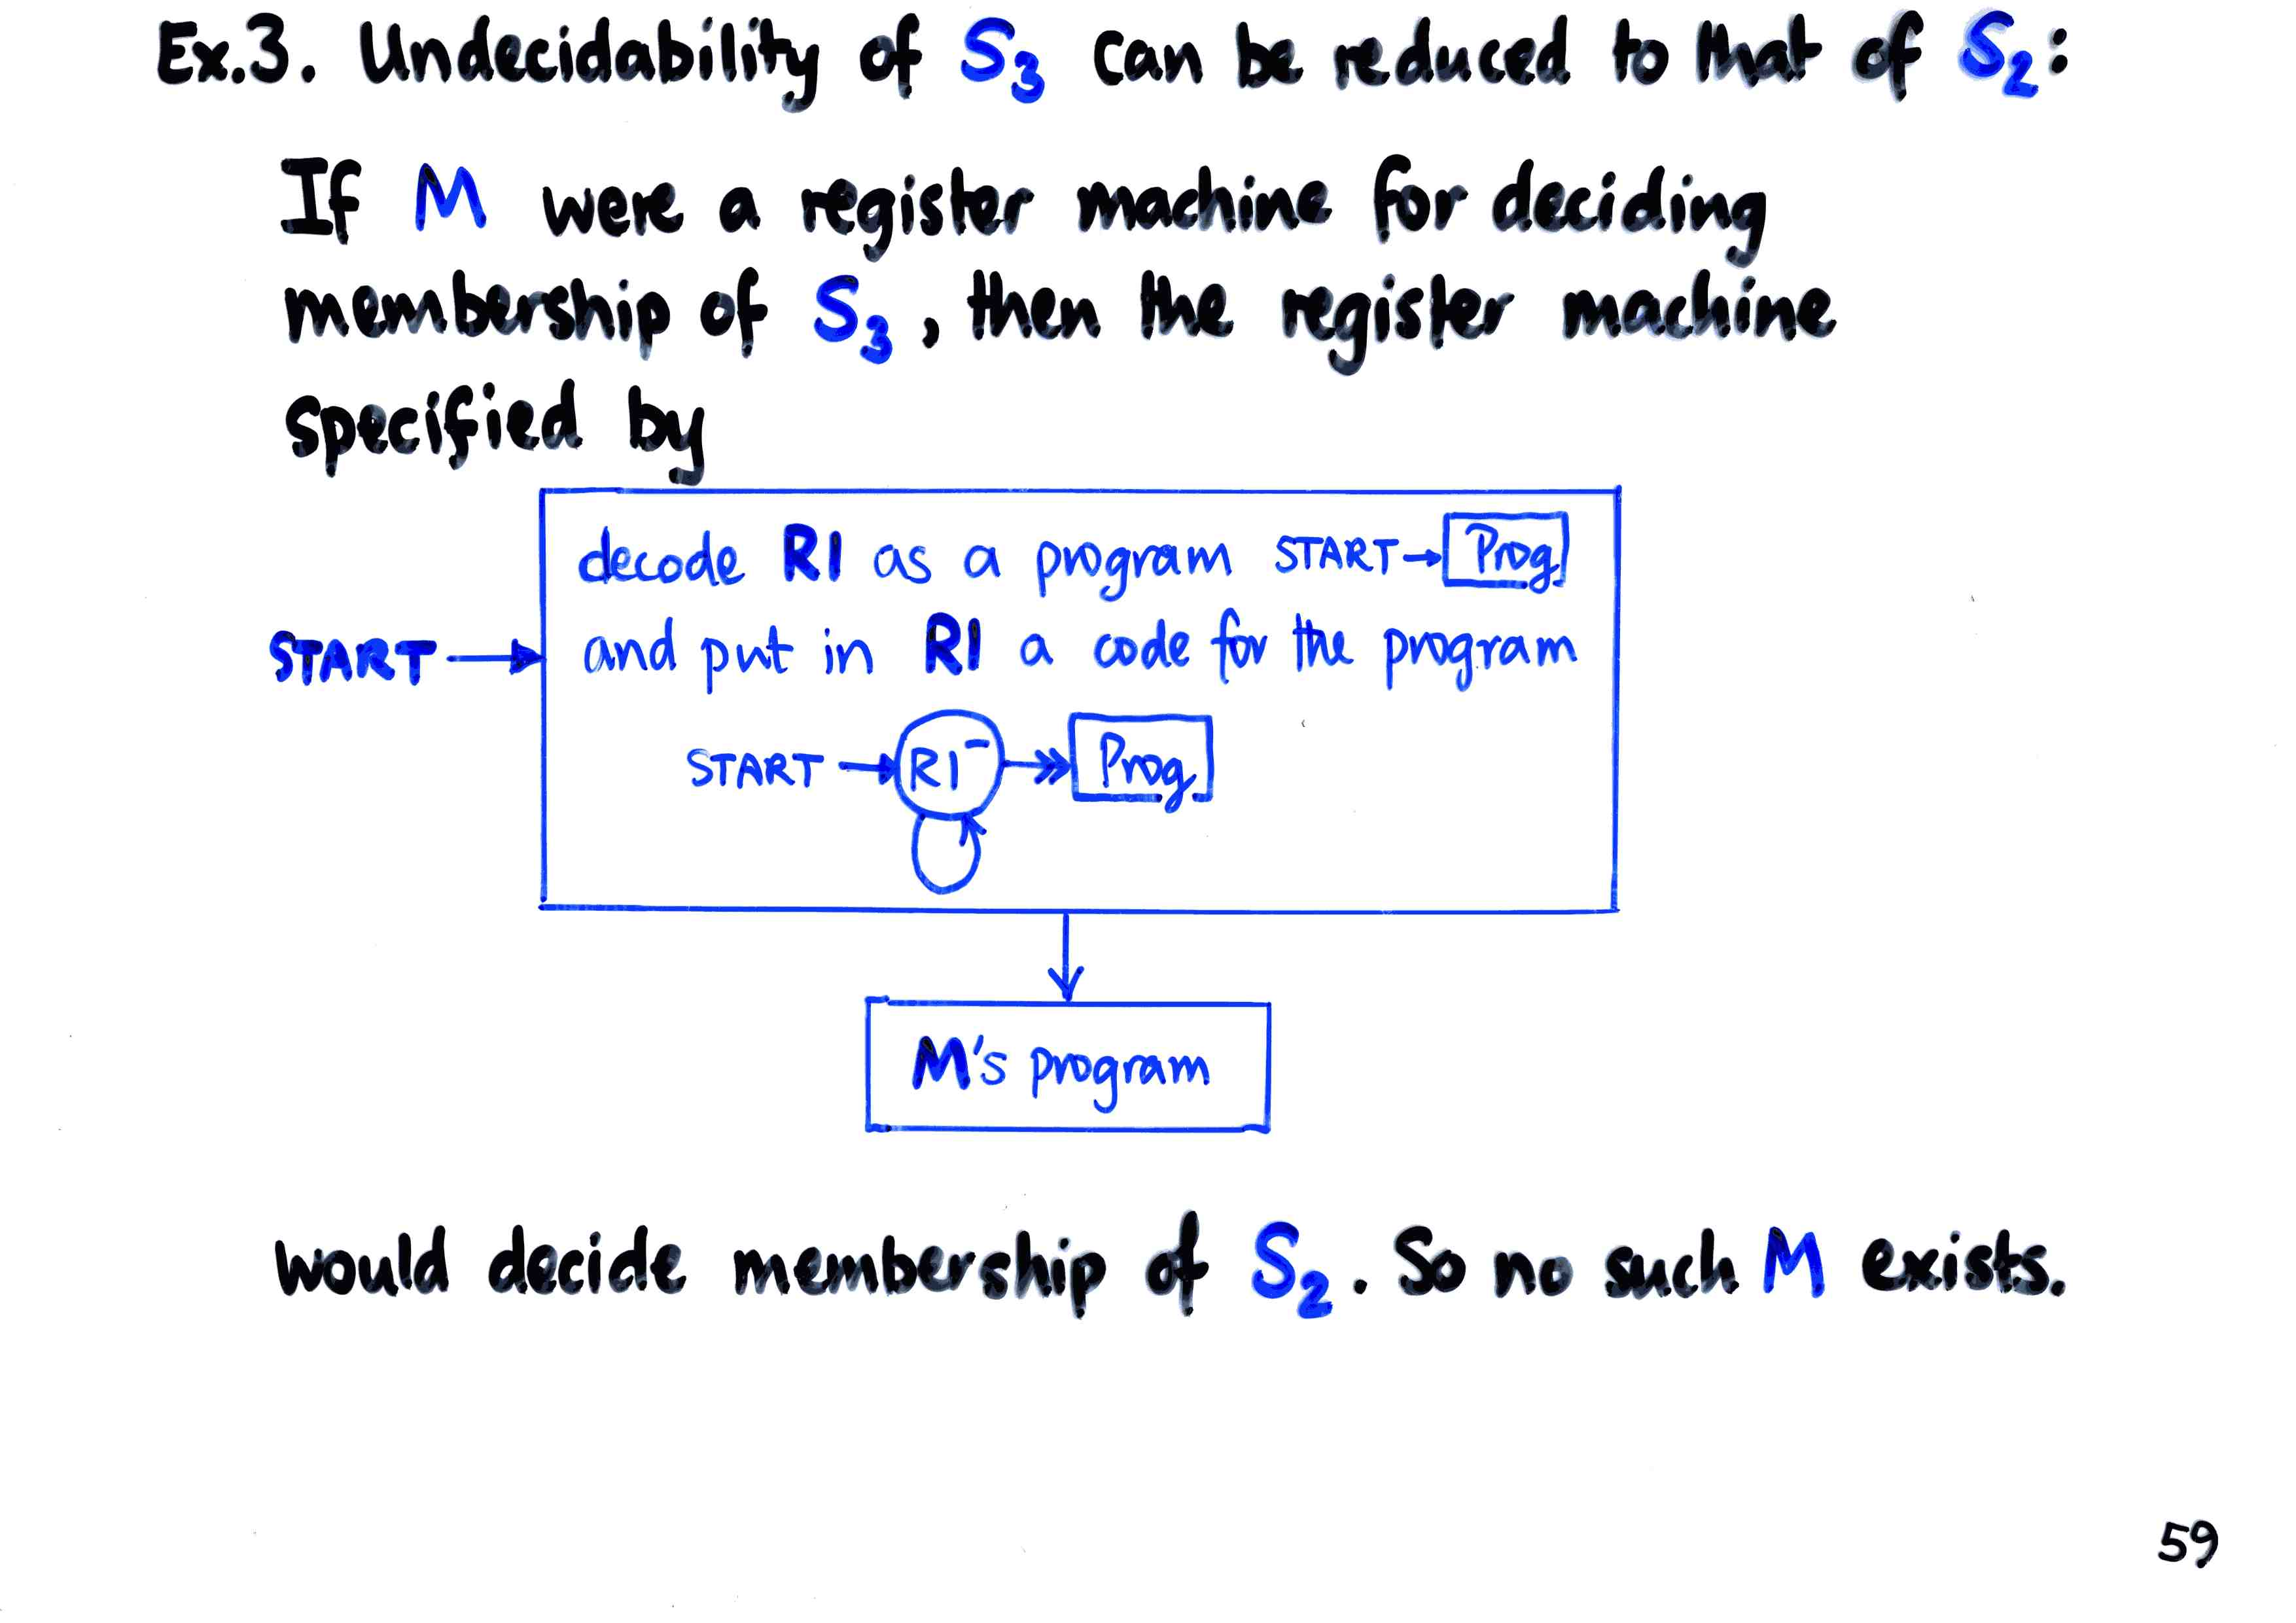 Ex.3. Undecidability of S₃ can be reduced to that of S₂:
If M were a register machine for deciding
membership of S₃, then the register machine
specified by
decode R1 as a program START→ Prog
START → and put in R1 a code for the program
START → R1⁻ ↠ Prog
M's program
would decide membership of S₂. So no such M exists.
59